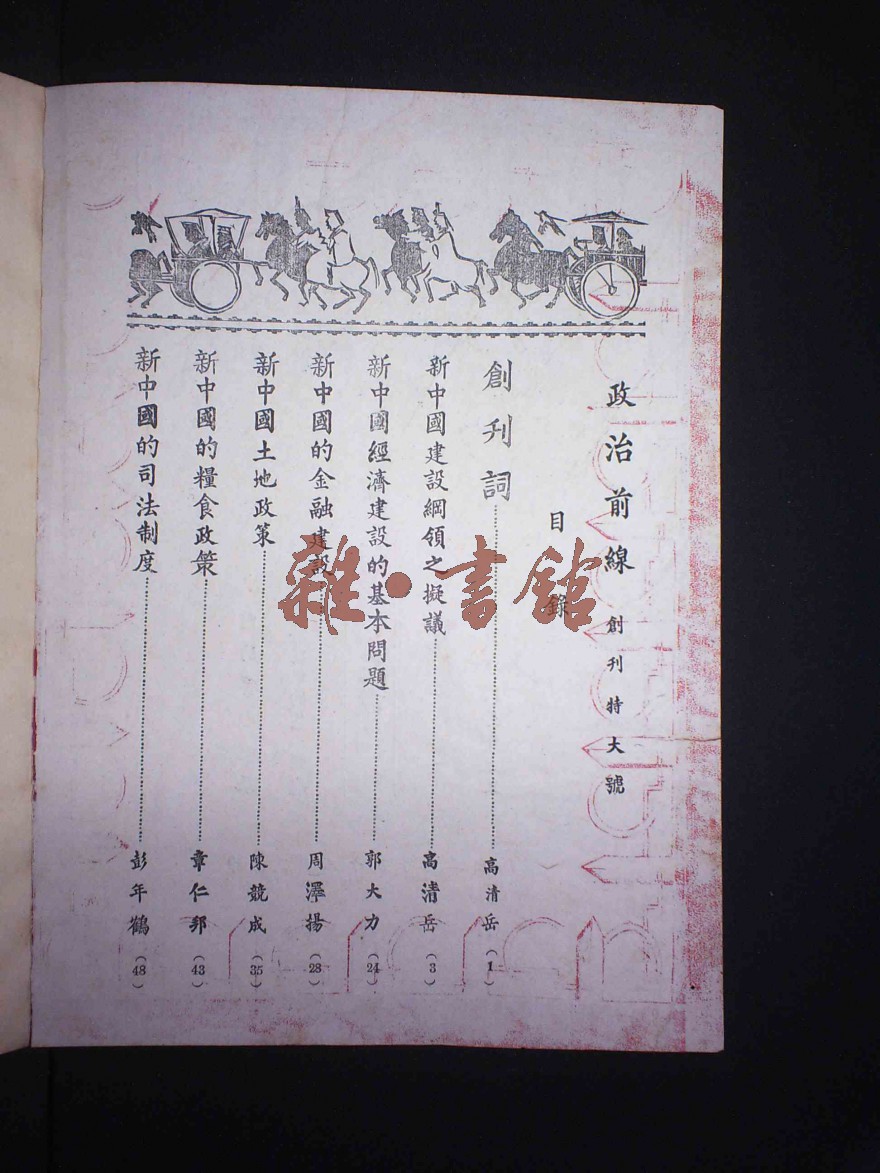 政治前線 創刊特大號
目錄
創刊詞 高清岳 (1)
新中國建設綱領之擬議 高清岳 (3)
新中國經濟建設的基本問題 郭大力 (24)
新中國的金融建設 周澤揚 (28)
新中國土地政策 陳競成 (35)
新中國的糧食政策 章仁邦 (43)
新中國的司法制度 彭年鶴 (48)
雜·書館